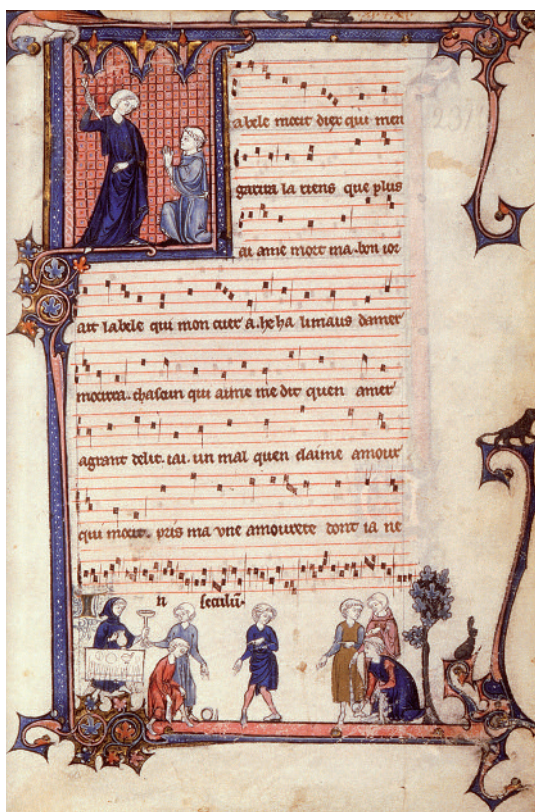 abele mocit diex qui men
garira la riens que plus
ai ame mort ma. bon ior
ait labele qui mon cuer a. he ha limaus damer
mocirra. chascun qui aime me dit quen amer
agrant delit. iai un mal quen claime amour
qui mocit. pris ma vne amourete dont ia ne
I n seculũ.